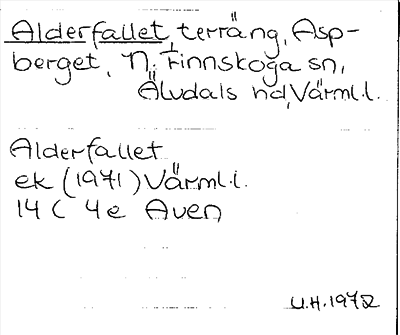 Alderfallet terräng, Asp-
berget, N. Finnskoga sn,
Älvdals hd, Värml.l.
Alderfallet
ek (1971) Värml.l.
14 C 4e Aven
U.H. 1972